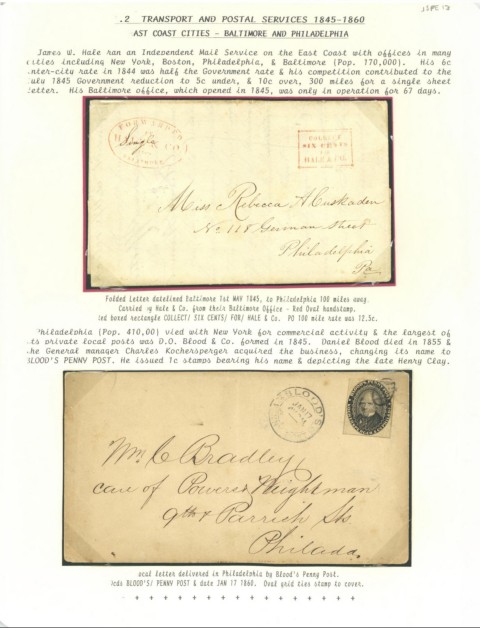 JSPE 17
.2 TRANSPORT AND POSTAL SERVICES 1845-1860
AST COAST CITIES - BALTIMORE AND PHILADELPHIA
James W. Hale ran an Independent Mail Service on the East Coast with offices in many
ities including New York, Boston, Philadelphia, & Baltimore (Pop. 170,000). His 6c
nter-city rate in 1844 was half the Government rate & his competition contributed to the
uly 1845 Government reduction to 5c under, & 10c over, 300 miles for a single sheet
etter. His Baltimore office, which opened in 1845, was only in operation for 67 days.
FORWARDED
Single
COLLECT
SIX CENTS
FOR
HALE & CO.
Miss Rebecca A Cuskaden
No 118 German Street
Philadelphia
Pa
Folded Letter datelined Baltimore 1st MAY 1845, to Philadelphia 100 miles away.
Carried by Hale & Co. from their Baltimore Office - Red Oval handstamp.
ed boxed rectangle COLLECT/ SIX CENTS/ FOR/ HALE & CO. PO 100 mile rate was 12.5c.
Philadelphia (Pop. 410,00) vied with New York for commercial activity & the largest of
ts private local posts was D.O. Blood & Co. formed in 1845. Daniel Blood died in 1855 &
he General manager Charles Kochersperger acquired the business, changing its name to
BLOOD'S PENNY POST. He issued 1c stamps bearing his name & depicting the late Henry Clay.
BLOOD'S
JAN 17
Wm C Bradley
care of Powers & Weightman
9th & Parrish Sts
Philada.
ocal letter delivered in Philadelphia by Blood's Penny Post.
cds BLOOD'S/ PENNY POST & date JAN 17 1860. Oval grid ties stamp to cover.
+ + + + + + + + + + + + + + + +